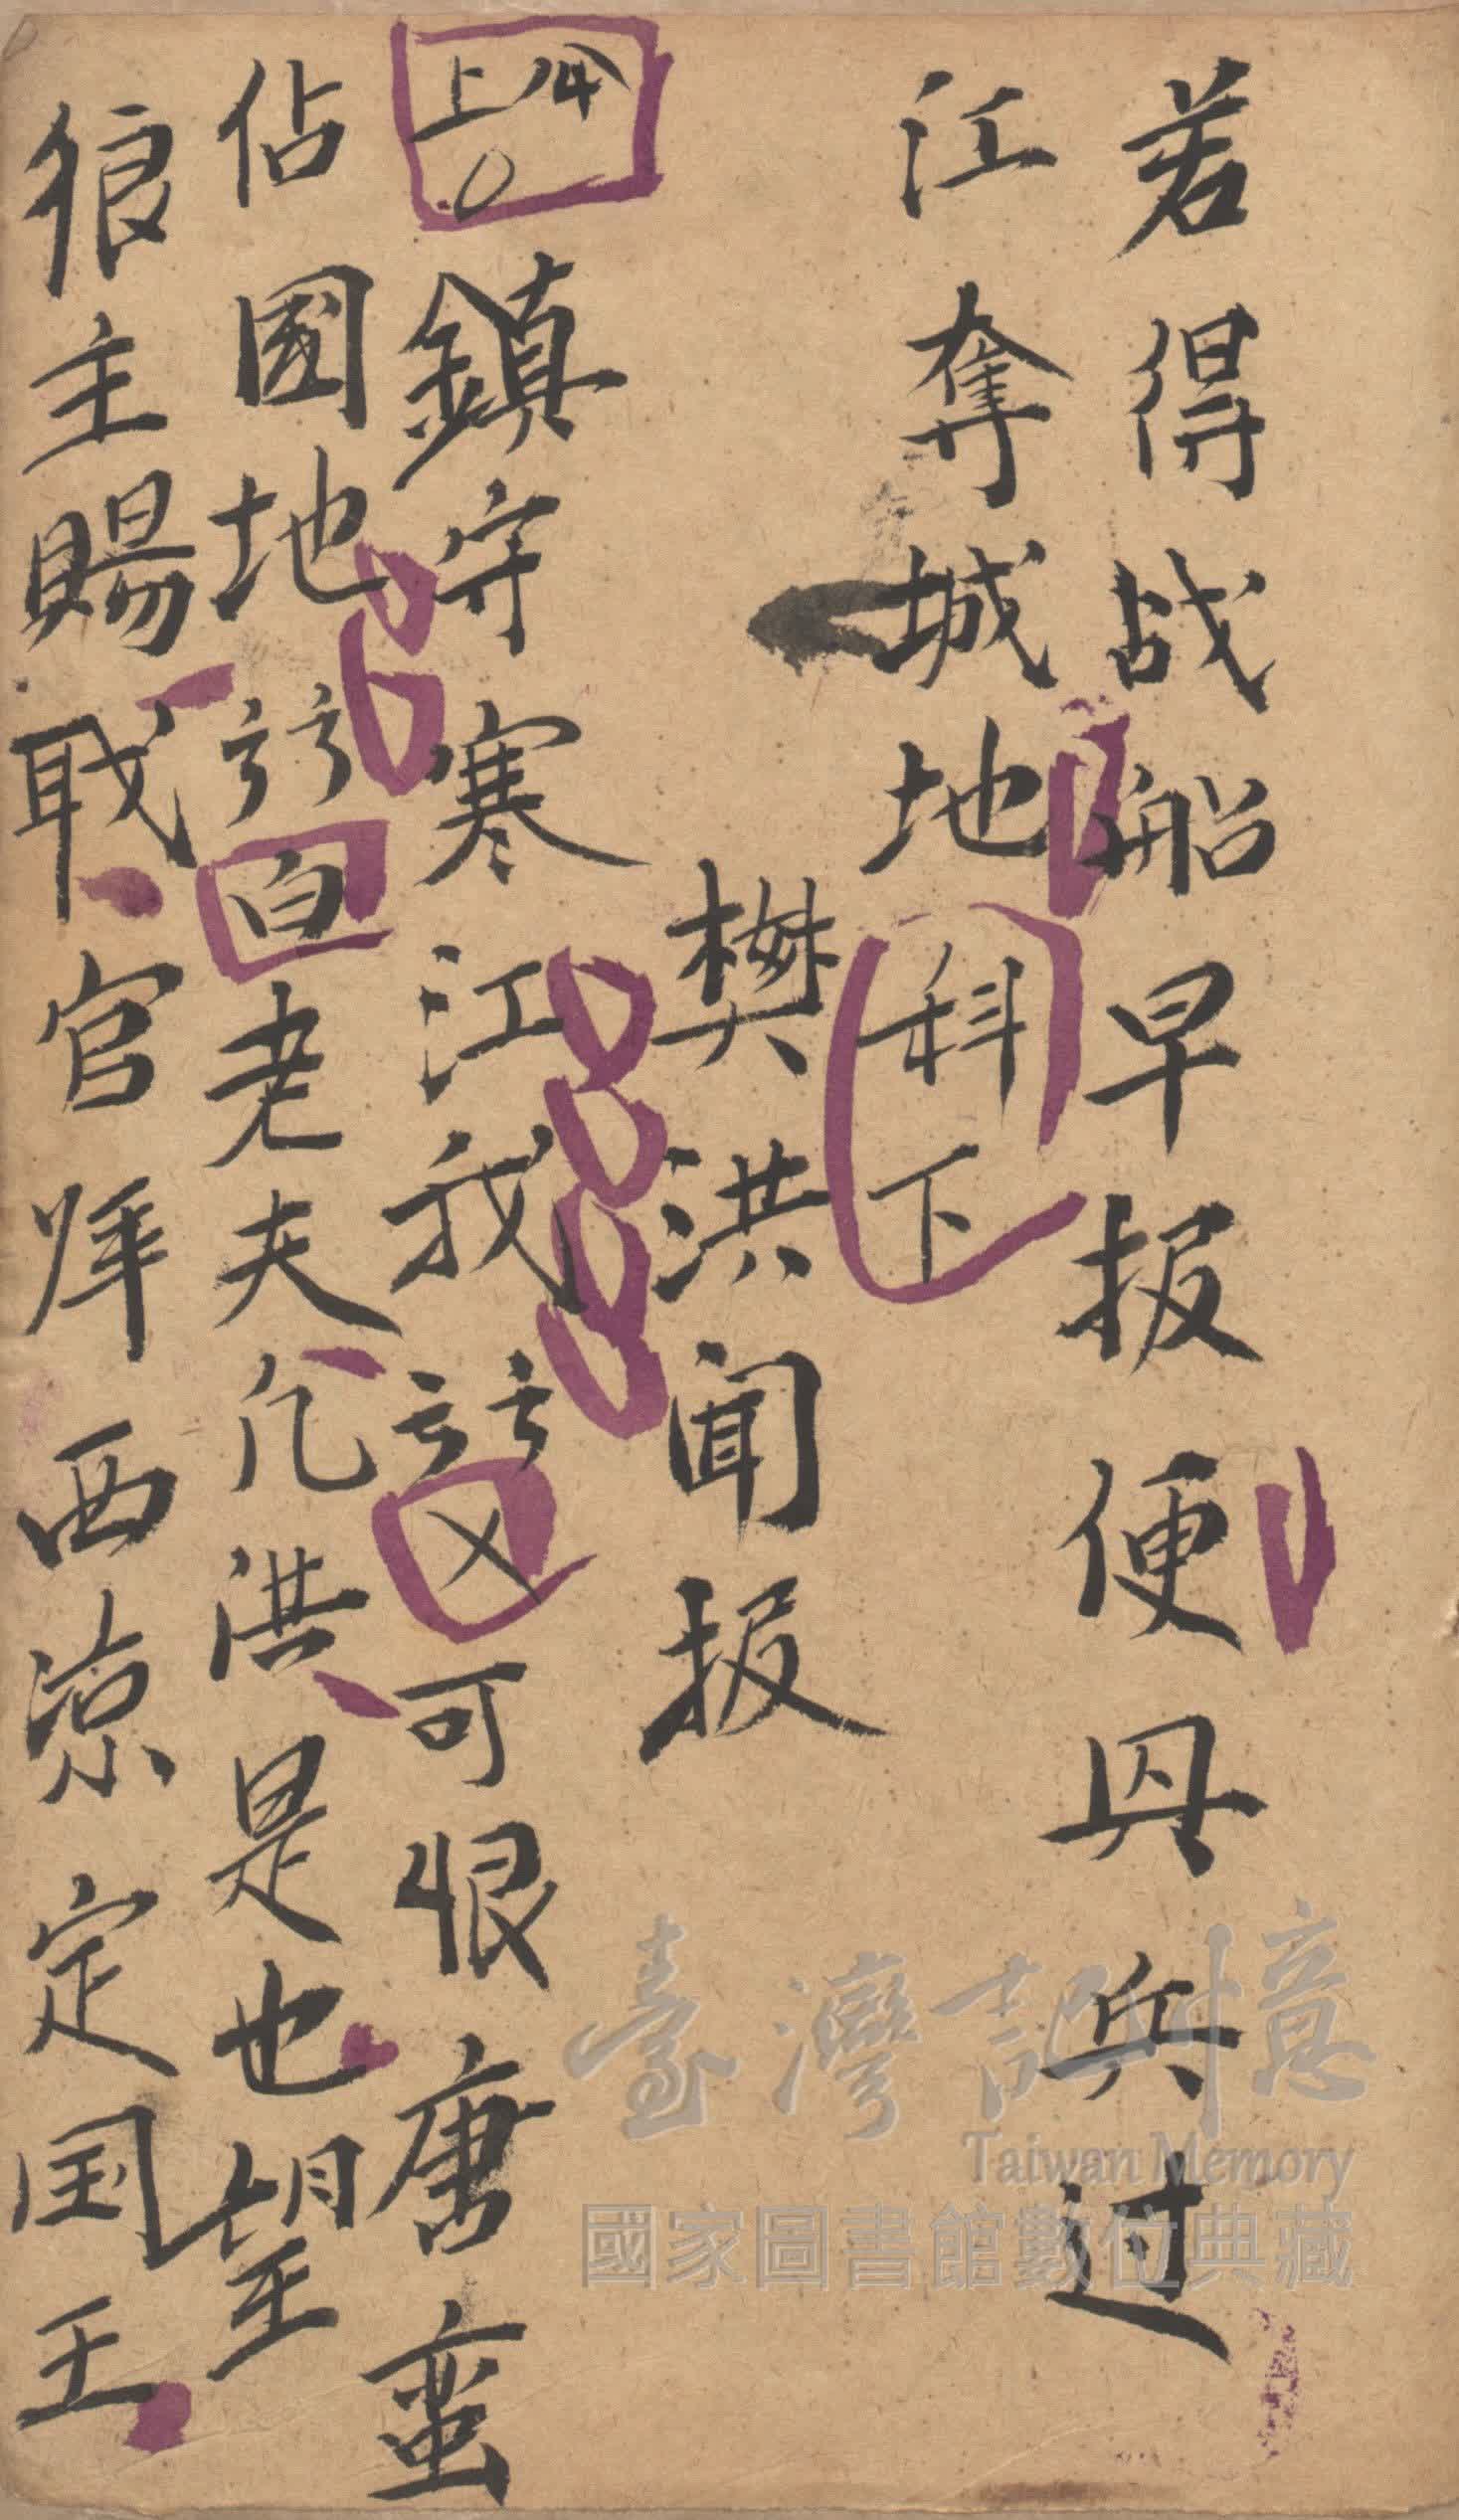 若得战船早报便丹兵过
江奪城地科下
樊洪闻报
上介〇鎮守寒江我亏亏乂可恨唐蛮
佔國地亏亏白老夫凡洪是也望
狼主賜戝官拜西凉定国王
臺灣記憶
Taiwan Memory
國家圖書館數位典藏